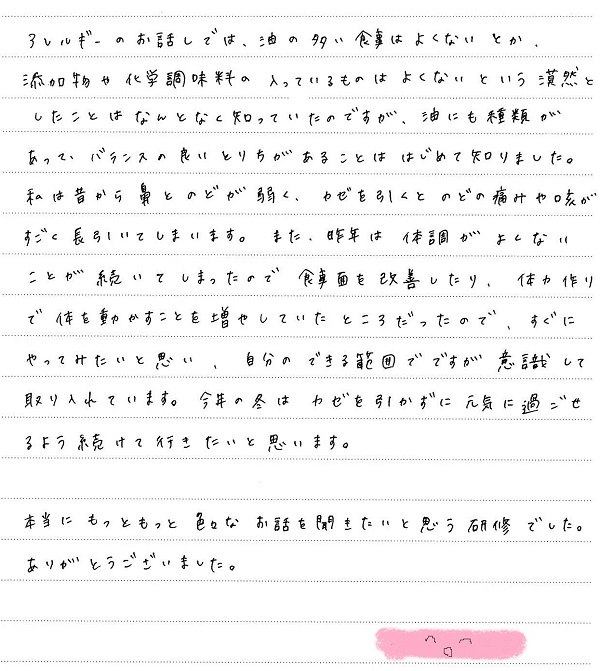 アレルギーのお話しでは、油の多い食事はよくないとか、
添加物や化学調味料の入っているものはよくないという漠然と
したことはなんとなく知っていたのですが、油にも種類が
あって、バランスの良いとりちがあることははじめて知りました。
私は昔から鼻とのどが弱く、カゼを引くとのどの痛みや咳が
すごく長引いてしまいます。また、昨年は体調がよくない
ことが続いてしまったので食事面を改善したり、体力作り
で体を動かすことを増やしていたところだったので、すぐに
やってみたいと思い、自分のできる範囲でですが意識して
取り入れています。今年の冬はカゼを引かずに元気に過ごせ
るよう続けて行きたいと思います。
本当にもっともっと色々なお話を聞きたいと思う研修でした。
ありがとうございました。